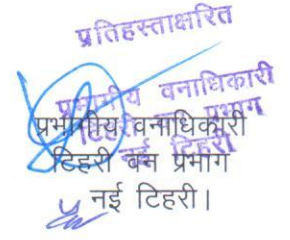 प्रतिहस्ताक्षरित
प्रभागीय वनाधिकारी
टिहरी वन प्रभाग
नई टिहरी
प्रभागीय वनाधिकारी
टिहरी वन प्रभाग
नई टिहरी।